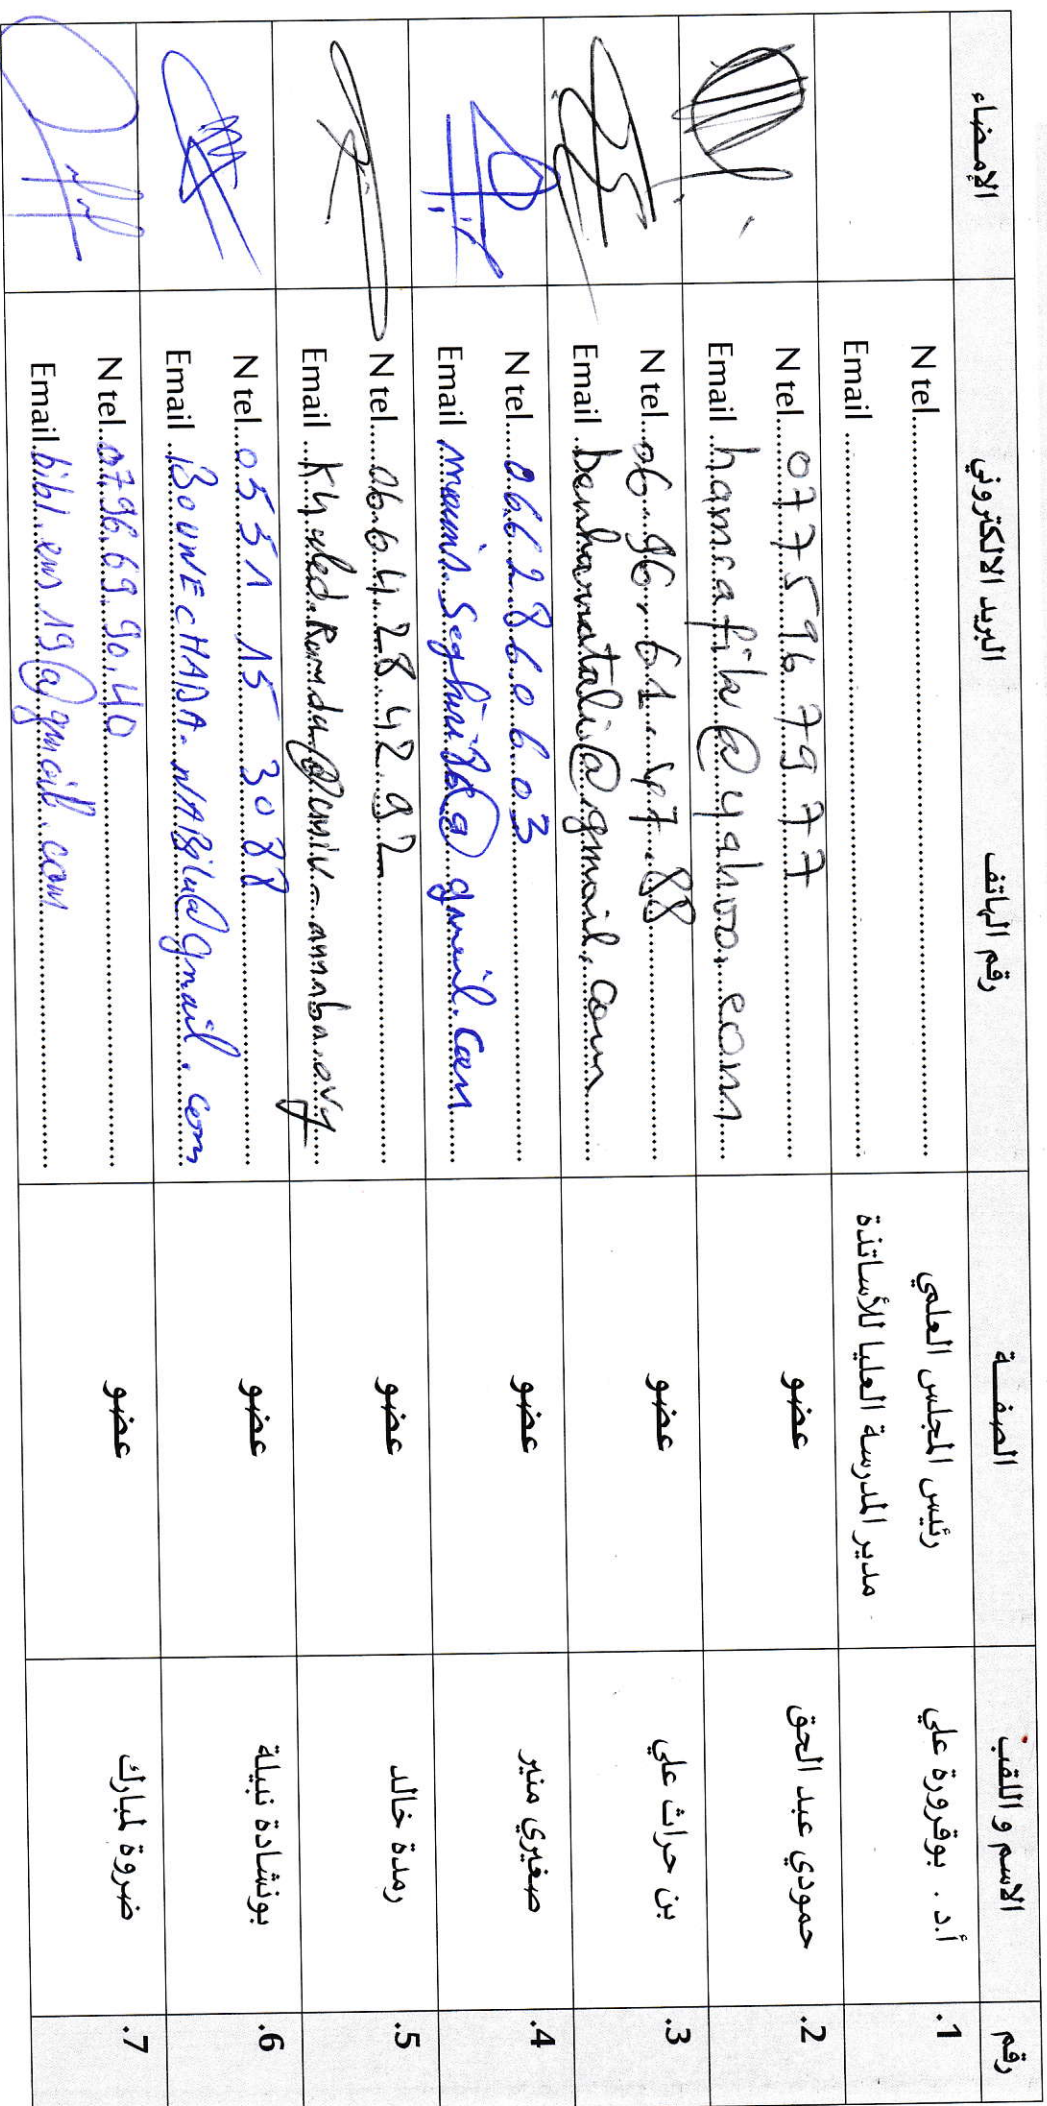 رقم الاسم و اللقب الصفة رقم الهاتف البريد الالكتروني الإمضاء
1. أ.د. بوقرورة علي
رئيس المجلس العلمي
مدير المدرسة العليا للأساتذة
N tel
Email
2. حمودي عبد الحق
عضو
N tel 0775967977
Email hamrafik@yahoo.com
3. بن حراث علي
عضو
N tel 06.96.61.47.88
Email benharratali@gmail.com
4. صغيري منير
عضو
N tel 0662860603
Email @gmail.com
5. رمدة خالد
عضو
N tel 06.64.28.42.92
Email
6. بونشادة نبيلة
عضو
N tel 0551 15 30 88
Email BOUNECHADA.NABila@gmail.com
7. ضروة لمبارك
عضو
N tel 0796.69.90.40
Email bibl.ens.19@gmail.com